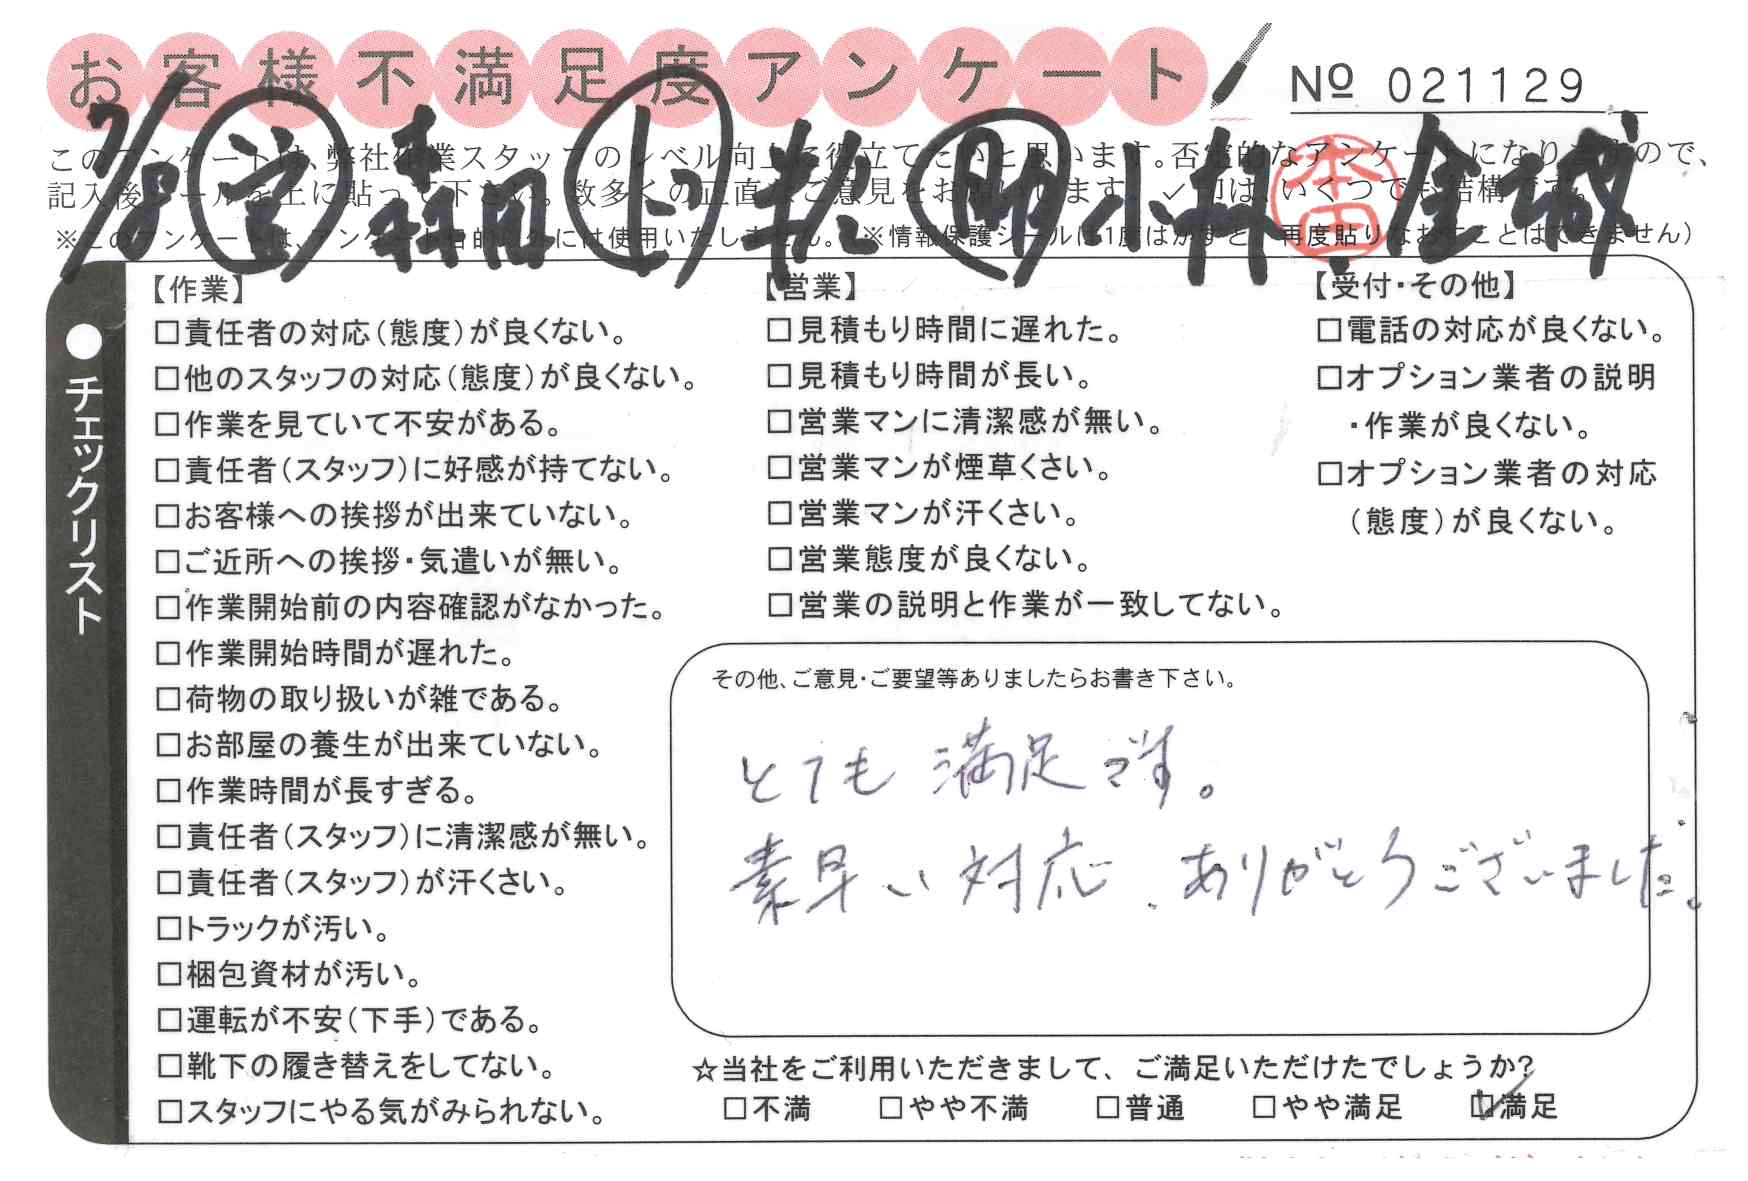 お客様不満足度アンケート
№ 021129
7/8 宝 森田 上 松 明 小林 本田 金城
このアンケートは、弊社作業スタッフのレベル向上に役立てたいと思います。否定的なアンケートになりますので、
記入後シールを上に貼って下さい。数多くの正直なご意見をお願いします。✓印は、いくつでも結構です。
※このアンケートは、アンケート目的以外には使用いたしません。(※情報保護シールは1度はがすと、再度貼りなおすことはできません)
●チェックリスト
【作業】
□責任者の対応(態度)が良くない。
□他のスタッフの対応(態度)が良くない。
□作業を見ていて不安がある。
□責任者(スタッフ)に好感が持てない。
□お客様への挨拶が出来ていない。
□ご近所への挨拶・気遣いが無い。
□作業開始前の内容確認がなかった。
□作業開始時間が遅れた。
□荷物の取り扱いが雑である。
□お部屋の養生が出来ていない。
□作業時間が長すぎる。
□責任者(スタッフ)に清潔感が無い。
□責任者(スタッフ)が汗くさい。
□トラックが汚い。
□梱包資材が汚い。
□運転が不安(下手)である。
□靴下の履き替えをしてない。
□スタッフにやる気がみられない。
【営業】
□見積もり時間に遅れた。
□見積もり時間が長い。
□営業マンに清潔感が無い。
□営業マンが煙草くさい。
□営業マンが汗くさい。
□営業態度が良くない。
□営業の説明と作業が一致してない。
【受付・その他】
□電話の対応が良くない。
□オプション業者の説明
・作業が良くない。
□オプション業者の対応
(態度)が良くない。
その他、ご意見・ご要望等ありましたらお書き下さい。
とても満足です。
素早い対応、ありがとうございました。
☆当社をご利用いただきまして、ご満足いただけたでしょうか?
□不満 □やや不満 □普通 □やや満足 ☑満足